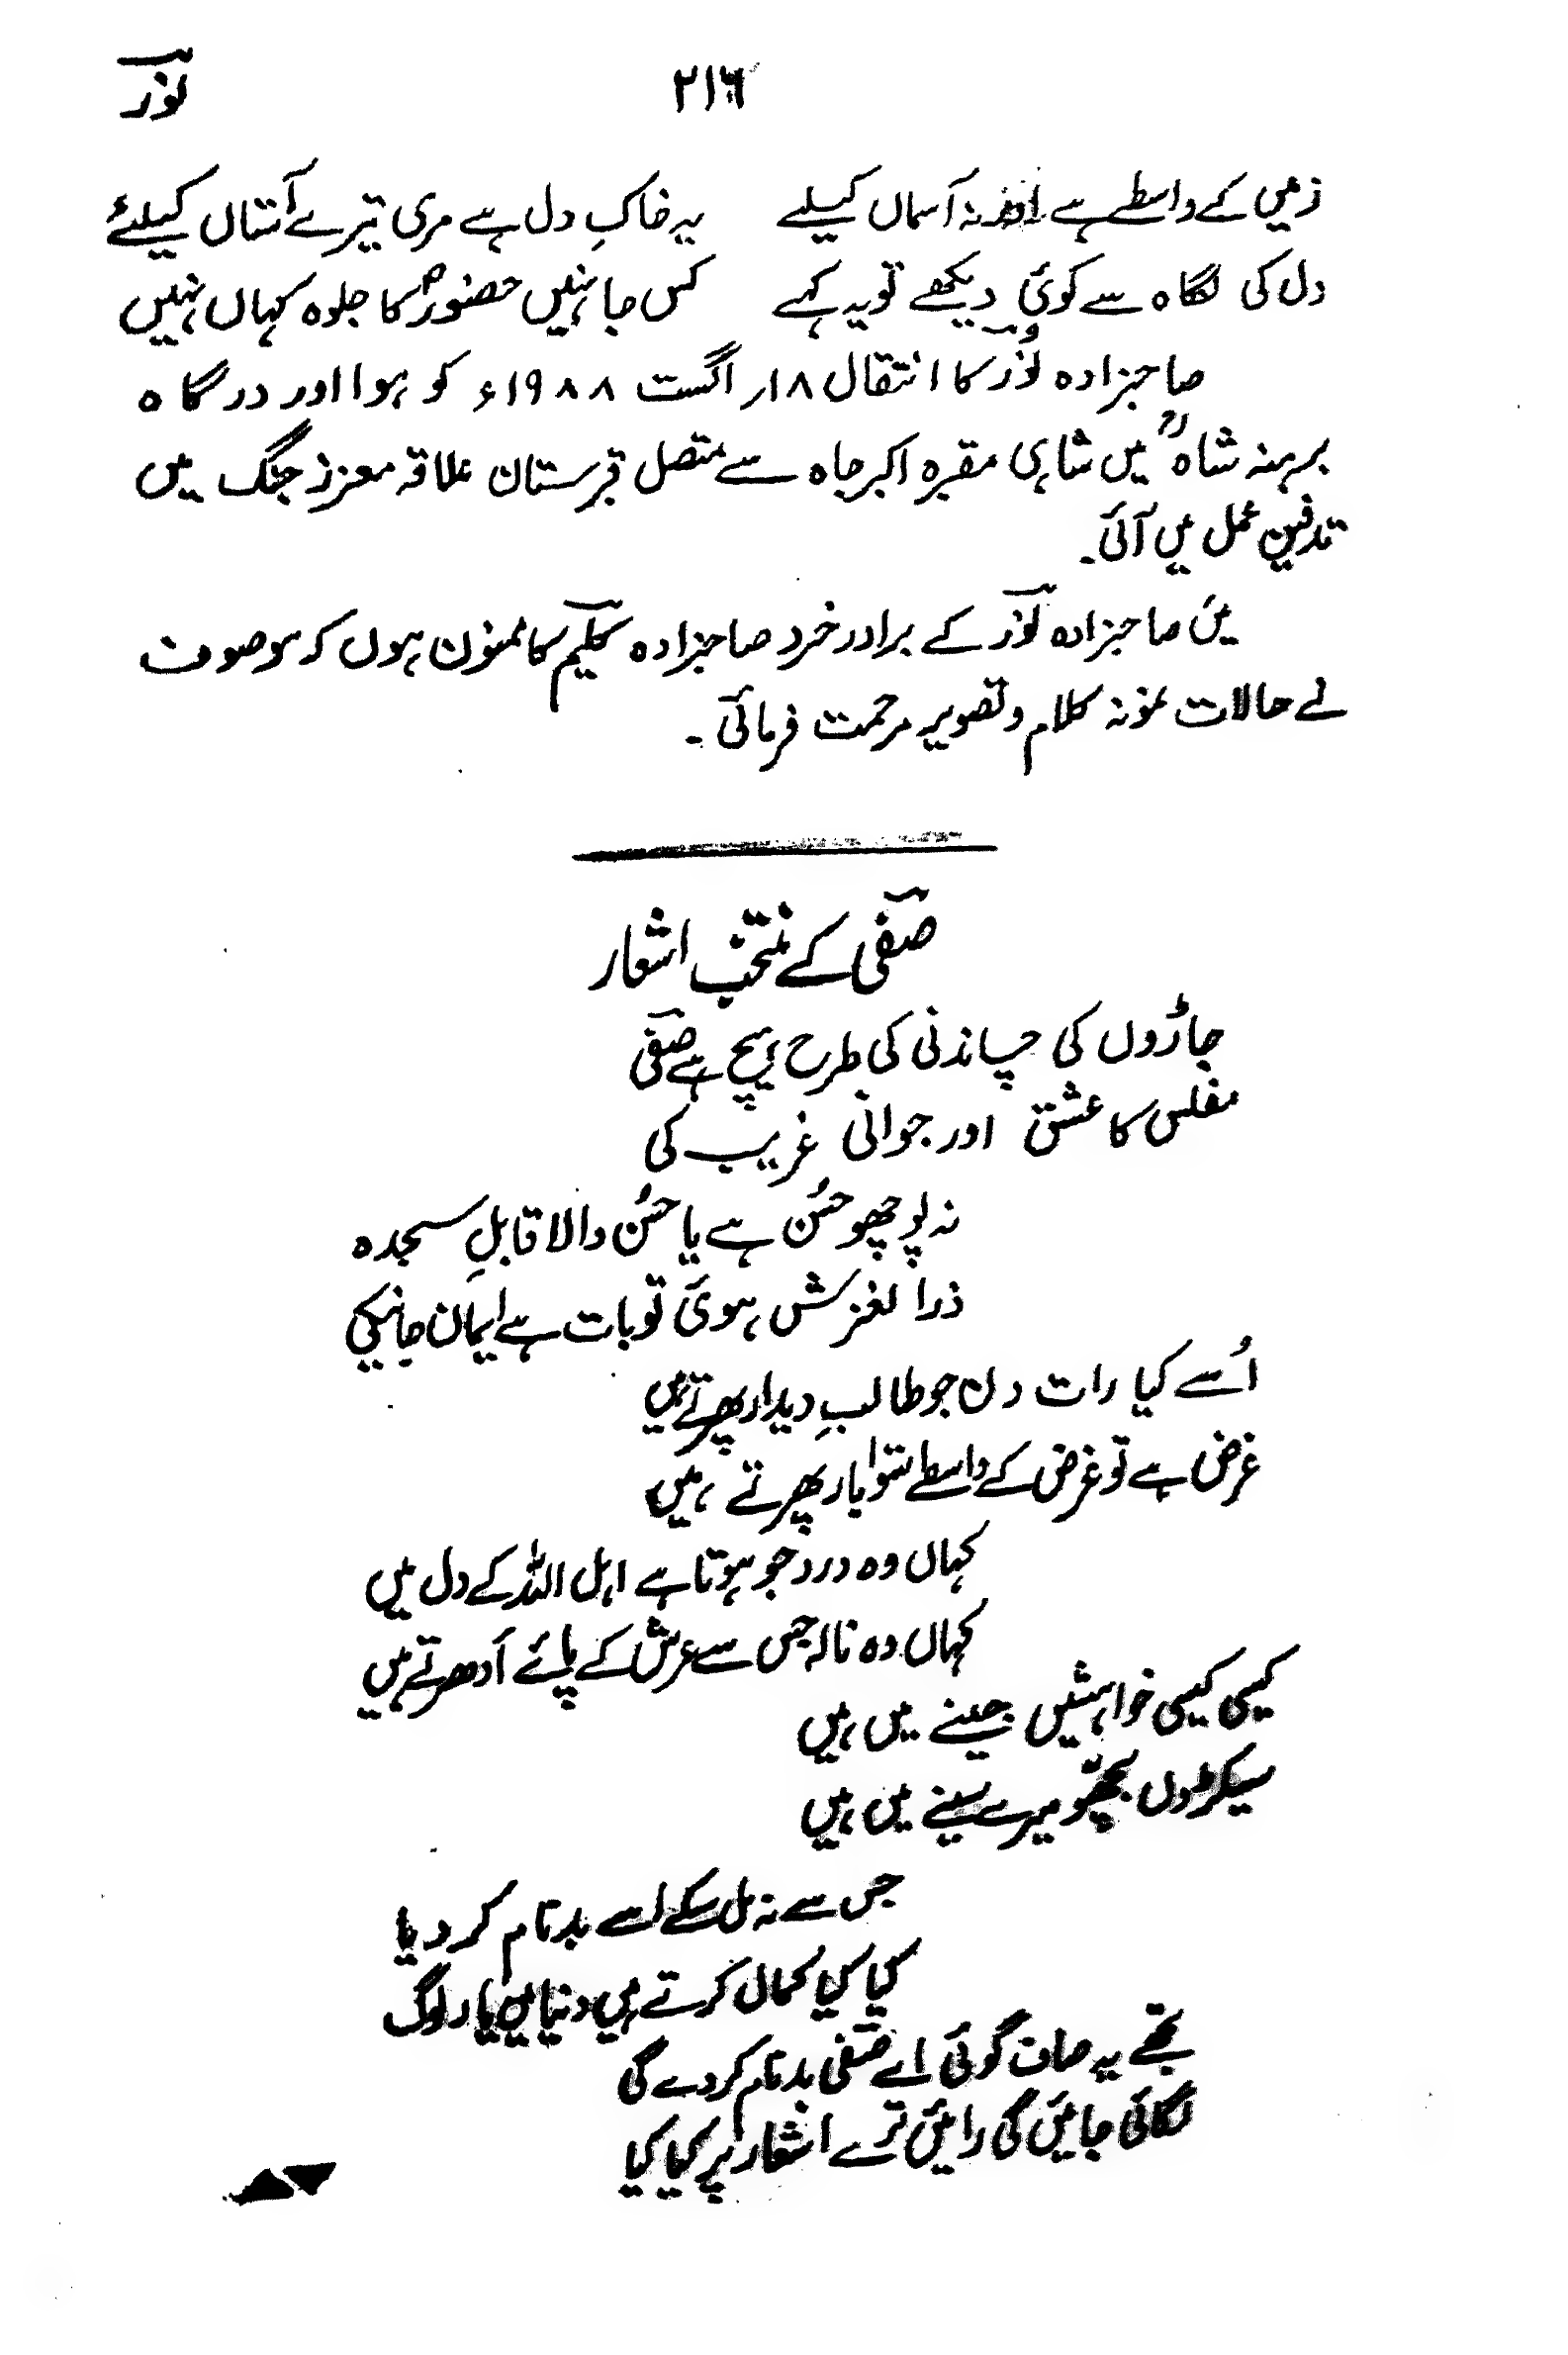 نورؔ ۲۱۶
زمیں کے واسطے ہے اور نہ آسماں کیلے یہ خاکِ دل ہے مری تیرے آستاں کیلئے
دل کی نگاہ سے کوئی دیکھے تو یہ کہے کس جا نہیں حضورؐ کا جلوہ کہاں نہیں
صاحبزادہ نورؔ کا انتقال ۱۸؍ اگست ۱۹۸۸ء کو ہوا اور درگاہ
برہنہ شاہؒ میں شاہی مقبرہ اکبر جاہ سے متصل قبرستان علاقہ معزز جنگ میں
تدفین عمل میں آئی۔
میں صاحبزادہ نورؔ کے برادر خرد صاحبزادہ کلیمؔ کا ممنون ہوں کہ موصوف
نے حالات نمونہ کلام و تصویر مرحمت فرمائی۔
صفیؔ کے منتخب اشعار
جاڑوں کی چاندنی کی طرح ہیچ ہے صفیؔ
مفلس کا عشق اور جوانی غریب کی
نہ پوچھو حُسن ہے یا حُسن والا قابلِ سجدہ
ذرا لغزش ہوئی تو بات ہے ایمان جانیکی
اُسے کیا رات دن جو طالبِ دیدار پھرتے ہیں
غرض ہے تو غرض کے واسطے سَو بار پھرتے ہیں
کہاں وہ درد جو ہوتا ہے اہل اللہ کے دل میں
کہاں وہ نالہ جس سے عرش کے پائے اُدھرتے ہیں
کیسی کیسی خواہشیں جینے میں ہیں
سیکڑوں بچھّو میرے سینے میں ہیں
جس سے نہ مل سکے اسے بدنام کر دیا
کیا کیا کمال کرتے ہیں دنیا میں یار لوگ
تجھے یہ صاف گوئی اے صفیؔ بدنام کردے گی
لگائی جائیں گی رائیں ترے اشعار پر کیا کیا